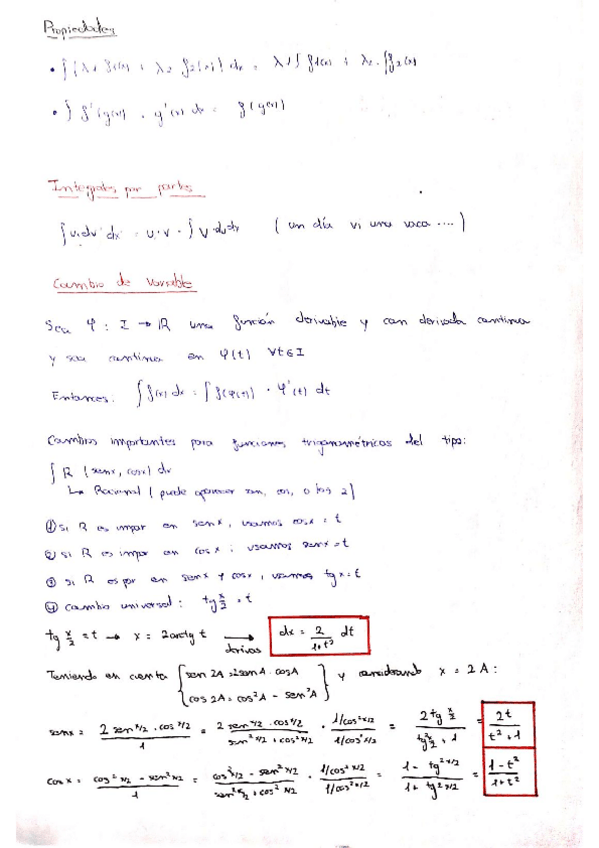 Propiedades
• ∫(λ1 f1(x) + λ2 f2(x)) dx = λ1 ∫ f1(x) + λ2 · ∫f2(x)
• ∫ f'(g(x)) · g'(x) dx = f(g(x))
Integrales por partes
∫u·dv dx = u·v - ∫v·du dx (un día vi una vaca ....)
Cambio de Variable
Sea φ : I → R una función derivable y con derivada continua
y sea continua en φ(t) ∀t∈I
Entonces: ∫f(x) dx = ∫f(φ(t)) · φ'(t) dt
Cambios importantes para funciones trigonométricas del tipo:
∫R (senx, cosx) dx
↳ Racional (puede aparecer sen, cos, o los 2)
① si R es impar en senx, usamos cosx = t
② si R es impar en cosx : usamos senx = t
③ si R es par en senx y cosx, usamos tgx = t
④ cambio universal: tg x/2 = t
tg x/2 = t → x = 2arctg t → derivas dx = 2/(1+t²) dt
Teniendo en cuenta {sen 2A = 2senA · cosA y considerando x = 2A:
cos 2A = cos²A - sen²A}
senx = (2 sen x/2 · cos x/2)/1 = (2 sen x/2 · cos x/2)/(sen² x/2 + cos² x/2) · (1/cos² x/2)/(1/cos² x/2) = (2 tg x/2)/(tg² x/2 + 1) = 2t/(t²+1)
cosx = (cos² x/2 - sen² x/2)/1 = (cos² x/2 - sen² x/2)/(sen² x/2 + cos² x/2) · (1/cos² x/2)/(1/cos² x/2) = (1 - tg² x/2)/(1 + tg² x/2) = (1-t²)/(1+t²)